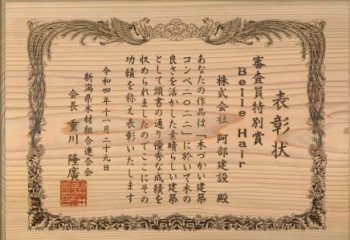 表彰状
審査員特別賞
Belle Hair
株式会社 阿部建設 殿
あなたの作品は「木づかい建築
コンペ二〇二二」に於いて木の
良さを活かした素晴らしい建築
として頭書の通り優秀な成績を
収められましたのでここにその
功績を称え表彰いたします
令和四年十一月二十九日
新潟県木材組合連合会
会長 重川 隆廣